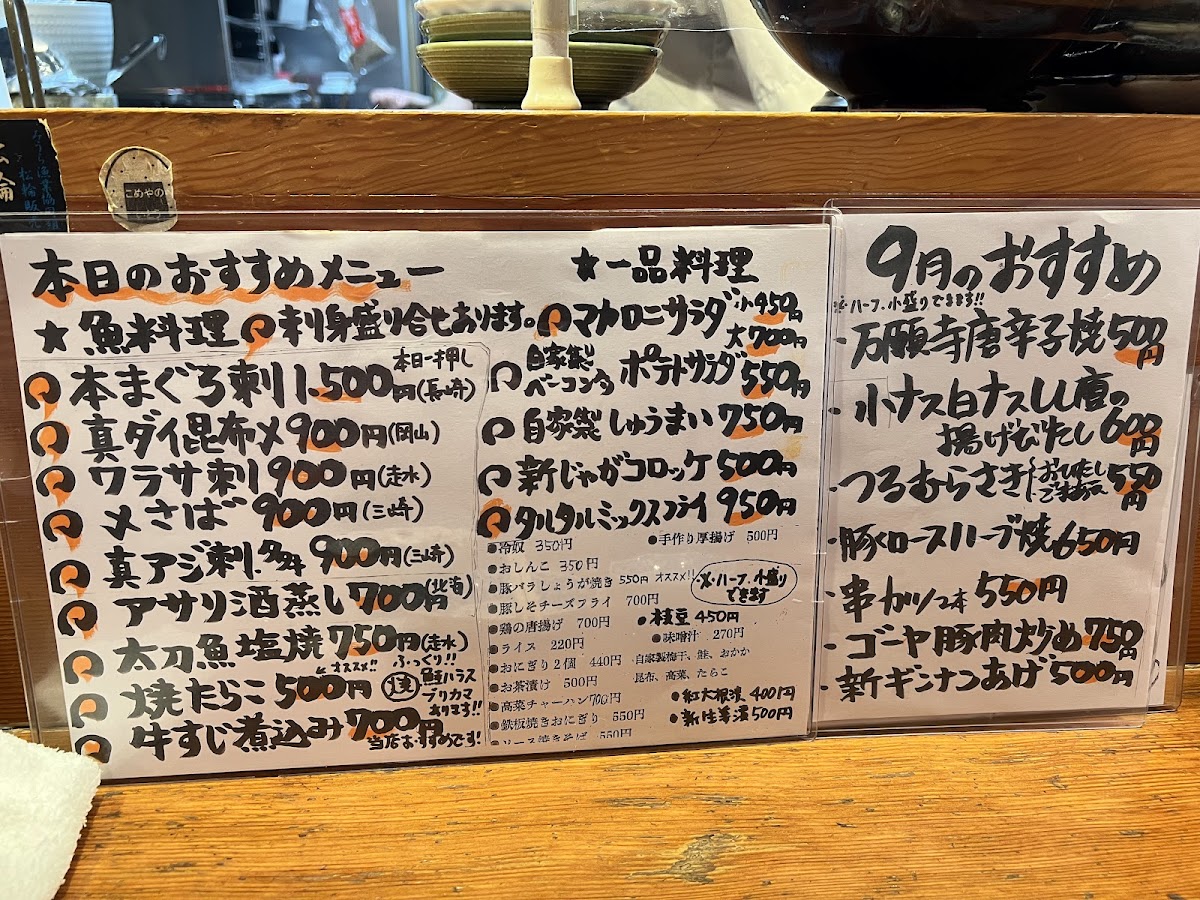 こめやの
本日のおすすめメニュー
★魚料理 刺身盛り合せあります。
本日一押し
本まぐろ刺 1.500円(長崎)
真ダイ昆布〆 900円(岡山)
ワラサ刺 900円(走水)
〆さば 900円(三崎)
真アジ刺 900円(三崎)
アサリ酒蒸し 700円(北海)
太刀魚塩焼 750円(走水)
焼たらこ 500円
オススメ!! ふっくり!!
焼 鮭ハラス
ブリカマ
あります!!
牛すじ煮込み 700円
当店おすすめです!
★一品料理
マカロニサラダ 小450円
大700円
自家製ベーコン入 ポテトサラダ 550円
自家製しゅうまい 750円
新じゃがコロッケ 500円
タルタルミックスフライ 950円
●冷奴 350円
●手作り厚揚げ 500円
●おしんこ 350円
●豚バラしょうが焼き 550円 オススメ!!
※ハーフ、小盛り
できます
●豚しそチーズフライ 700円
●鶏の唐揚げ 700円
●枝豆 450円
●ライス 220円
●味噌汁 270円
●おにぎり2個 440円
自家製梅干、鮭、おかか
昆布、高菜、たらこ
●お茶漬け 500円
●高菜チャーハン 700円
●紅大根漬 400円
●鉄板焼きおにぎり 550円
●新生姜漬 500円
●ソース焼きそば 550円
9月のおすすめ
※ハーフ、小盛りできます!!
・万願寺唐辛子焼 500円
・小ナス白ナスしし唐の
揚げびたし 600円
・つるむらさき おひたし 550円
・豚ロースハーブ焼 650円
・串カツ2本 550円
・ゴーヤ豚肉炒め 750円
・新ギンナンあげ 500円